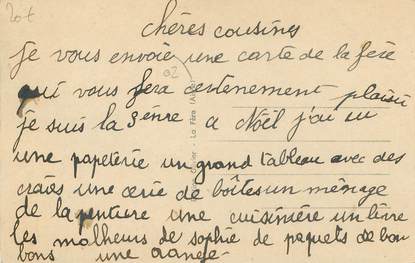 20t
chères cousines
je vous envoie une carte de la fère
02
qui vous fera certenement plaisir
je suis la 3 ère a Noël j'ai eu
une papeterie un grand tableau avec des
craies une cerie de boîtes un ménage
de la penture une cuisinière un livre
les malheurs de sophie de paquets de bon
bons une orange
La Fère